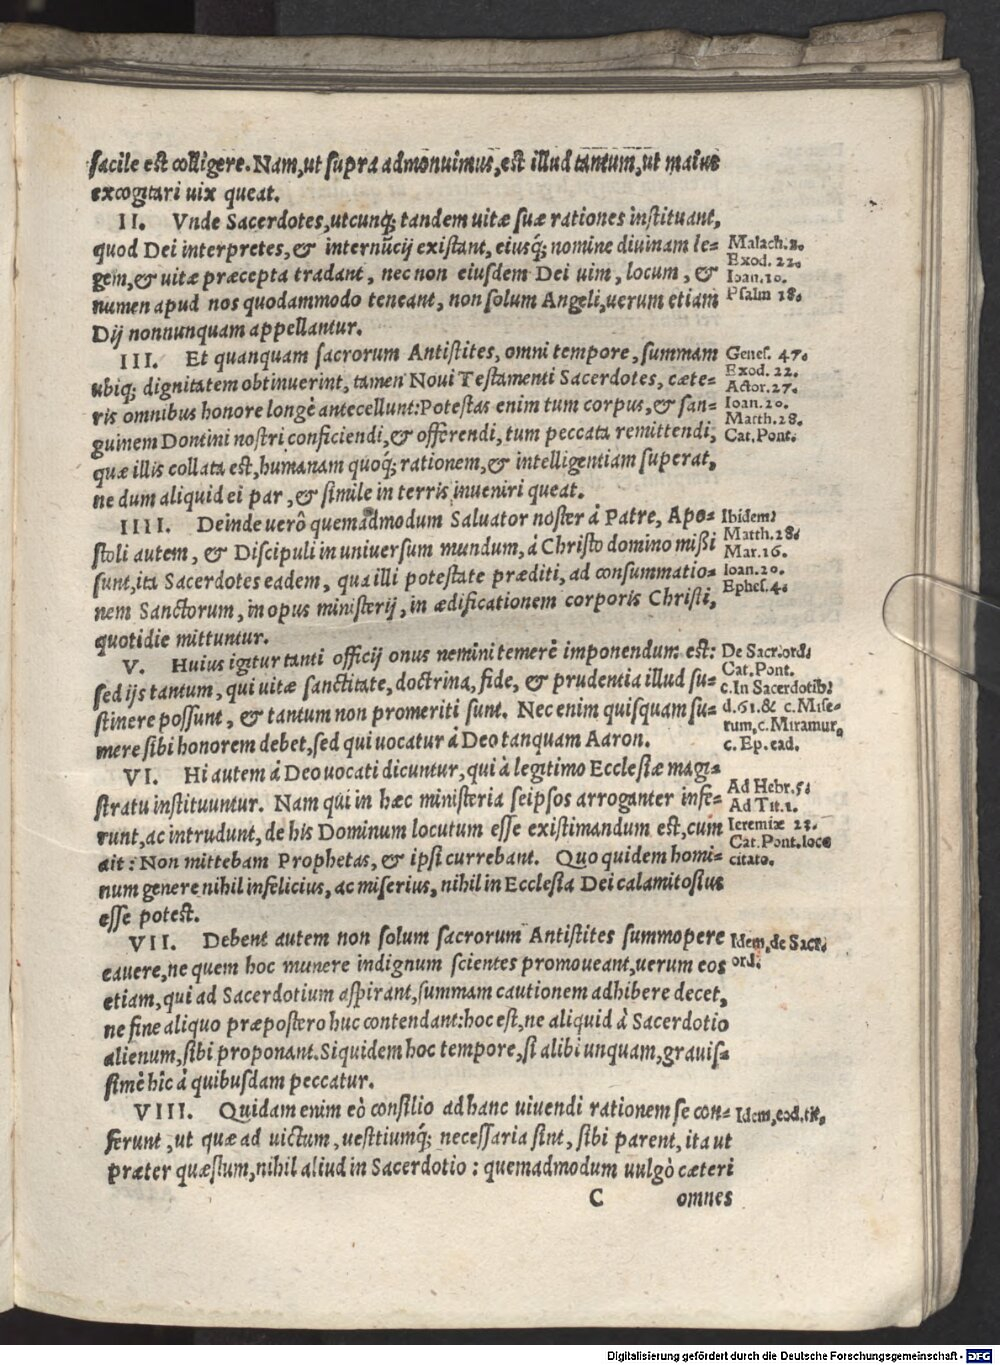 facile est colligere. Nam, ut supra admonuimus, est illud tantum, ut maius
excogitari uix queat.
II. Vnde Sacerdotes, utcunq; tandem uitæ suæ rationes instituant,
quod Dei interpretes, & internũcij existant, eiusq́; nomine diuinam le=
gem, & uitæ præcepta tradant, nec non eiusdem Dei uim, locum, &
numen apud nos quodammodo teneant, non solum Angeli, uerum etiam
Dij nonnunquam appellantur.
Malach. 2.
Exod. 22.
Ioan. 10.
Psalm 18.
III. Et quanquam sacrorum Antistites, omni tempore, summam
ubiq; dignitatem obtinuerint, tamen Noui Testamenti Sacerdotes, cæte=
ris omnibus honore longè antecellunt: Potestas enim tum corpus, & san=
guinem Domini nostri conficiendi, & offerendi, tum peccata remittendi,
quæ illis collata est, humanam quoq́; rationem, & intelligentiam superat,
ne dum aliquid ei par, & simile in terris inueniri queat.
Genes. 47.
Exod. 22.
Actor. 27.
Ioan. 20.
Matth. 28.
Cat. Pont.
IIII. Deinde uerò quemadmodum Saluator noster à Patre, Apo=
stoli autem, & Discipuli in uniuersum mundum, à Christo domino mißi
sunt, ita Sacerdotes eadem, qua illi potestate præditi, ad consummatio=
nem Sanctorum, in opus ministerij, in ædificationem corporis Christi,
quotidie mittuntur.
Ibidem.
Matth. 28.
Mar. 16.
Ioan. 20.
Ephes. 4.
V. Huius igitur tanti officij onus nemini temerè imponendum est:
sed ijs tantum, qui uitæ sanctitate, doctrina, fide, & prudentia illud su=
stinere possunt, & tantum non promeriti sunt. Nec enim quisquam su=
mere sibi honorem debet, sed qui uocatur à Deo tanquam Aaron.
De Sacr. ord.
Cat. Pont.
c. In Sacerdotib.
d. 61. & c. Mise=
rum, c. Miramur,
c. Ep. ead.
VI. Hi autem à Deo uocati dicuntur, qui à legitimo Ecclesiæ magi=
stratu instituuntur. Nam qui in hæc ministeria seipsos arroganter infe=
runt, ac intrudunt, de his Dominum locutum esse existimandum est, cum
ait: Non mittebam Prophetas, & ipsi currebant. Quo quidem homi=
num genere nihil infelicius, ac miserius, nihil in Ecclesia Dei calamitosius
esse potest.
Ad Hebr. 5.
Ad Tit. 1.
Ieremiæ 23.
Cat. Pont. loco
citato.
VII. Debent autem non solum sacrorum Antistites summopere
cauere, ne quem hoc munere indignum scientes promoueant, uerum eos
etiam, qui ad Sacerdotium aspirant, summam cautionem adhibere decet,
ne fine aliquo præpostero huc contendant: hoc est, ne aliquid à Sacerdotio
alienum, sibi proponant. Siquidem hoc tempore, si alibi unquam, grauis=
simè hîc à quibusdam peccatur.
Idem, de Sacr.
ord.
VIII. Quidam enim eò consilio ad hanc uiuendi rationem se con=
ferunt, ut quæ ad uictum, uestitiumq́; necessaria sint, sibi parent, ita ut
præter quæstum, nihil aliud in Sacerdotio: quemadmodum uulgò cæteri
Idem, eod. tit.
C omnes
Digitalisierung gefördert durch die Deutsche Forschungsgemeinschaft - DFG